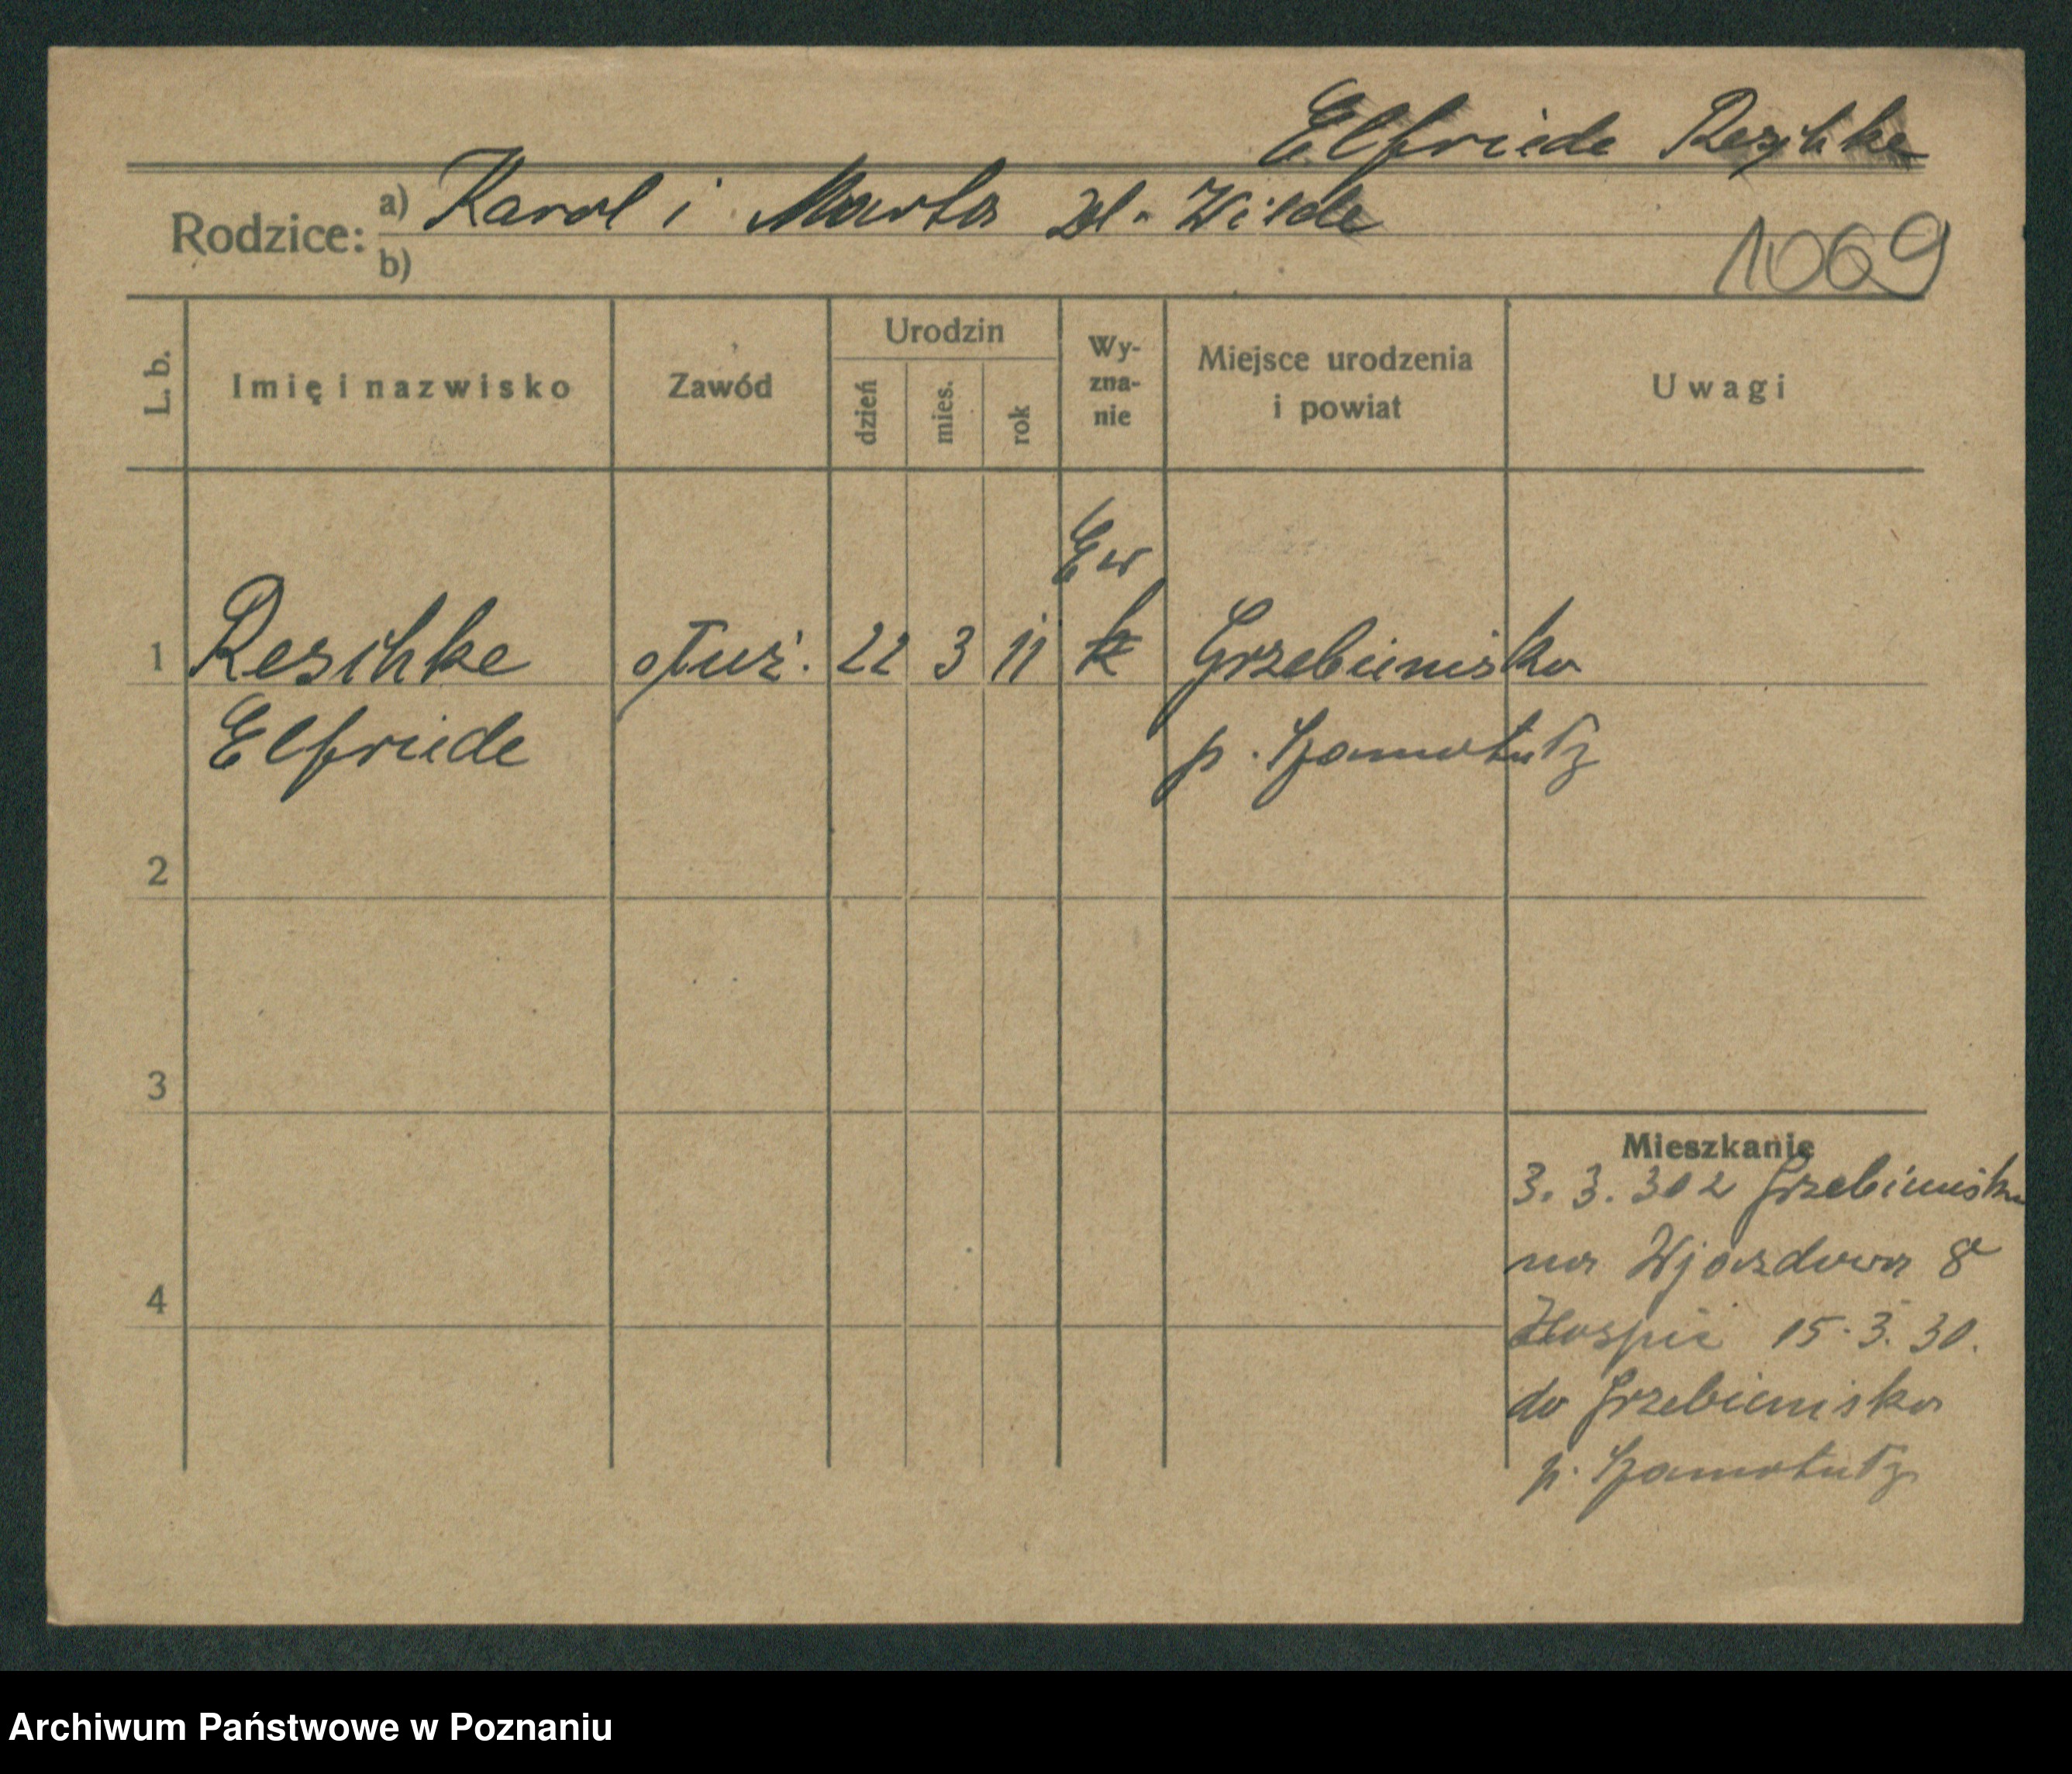 Elfriede Reschke
Rodzice: a) Karol i Marta zd. Wilde
b)
1069
L. b.
Imię i nazwisko
Zawód
Urodzin
dzień
mies.
rok
Wy-
zna-
nie
Miejsce urodzenia
i powiat
Uwagi
Ew
1 Reschke służ. 22 3 11 k Grzebienisko
Elfriede p. Szamotuły
2
3
4
Mieszkanie
3. 3. 30 z Grzebieniska
na Wjazdowa 8
Hospic 15. 3. 30.
do Grzebieniska
p. Szamotuły
Archiwum Państwowe w Poznaniu